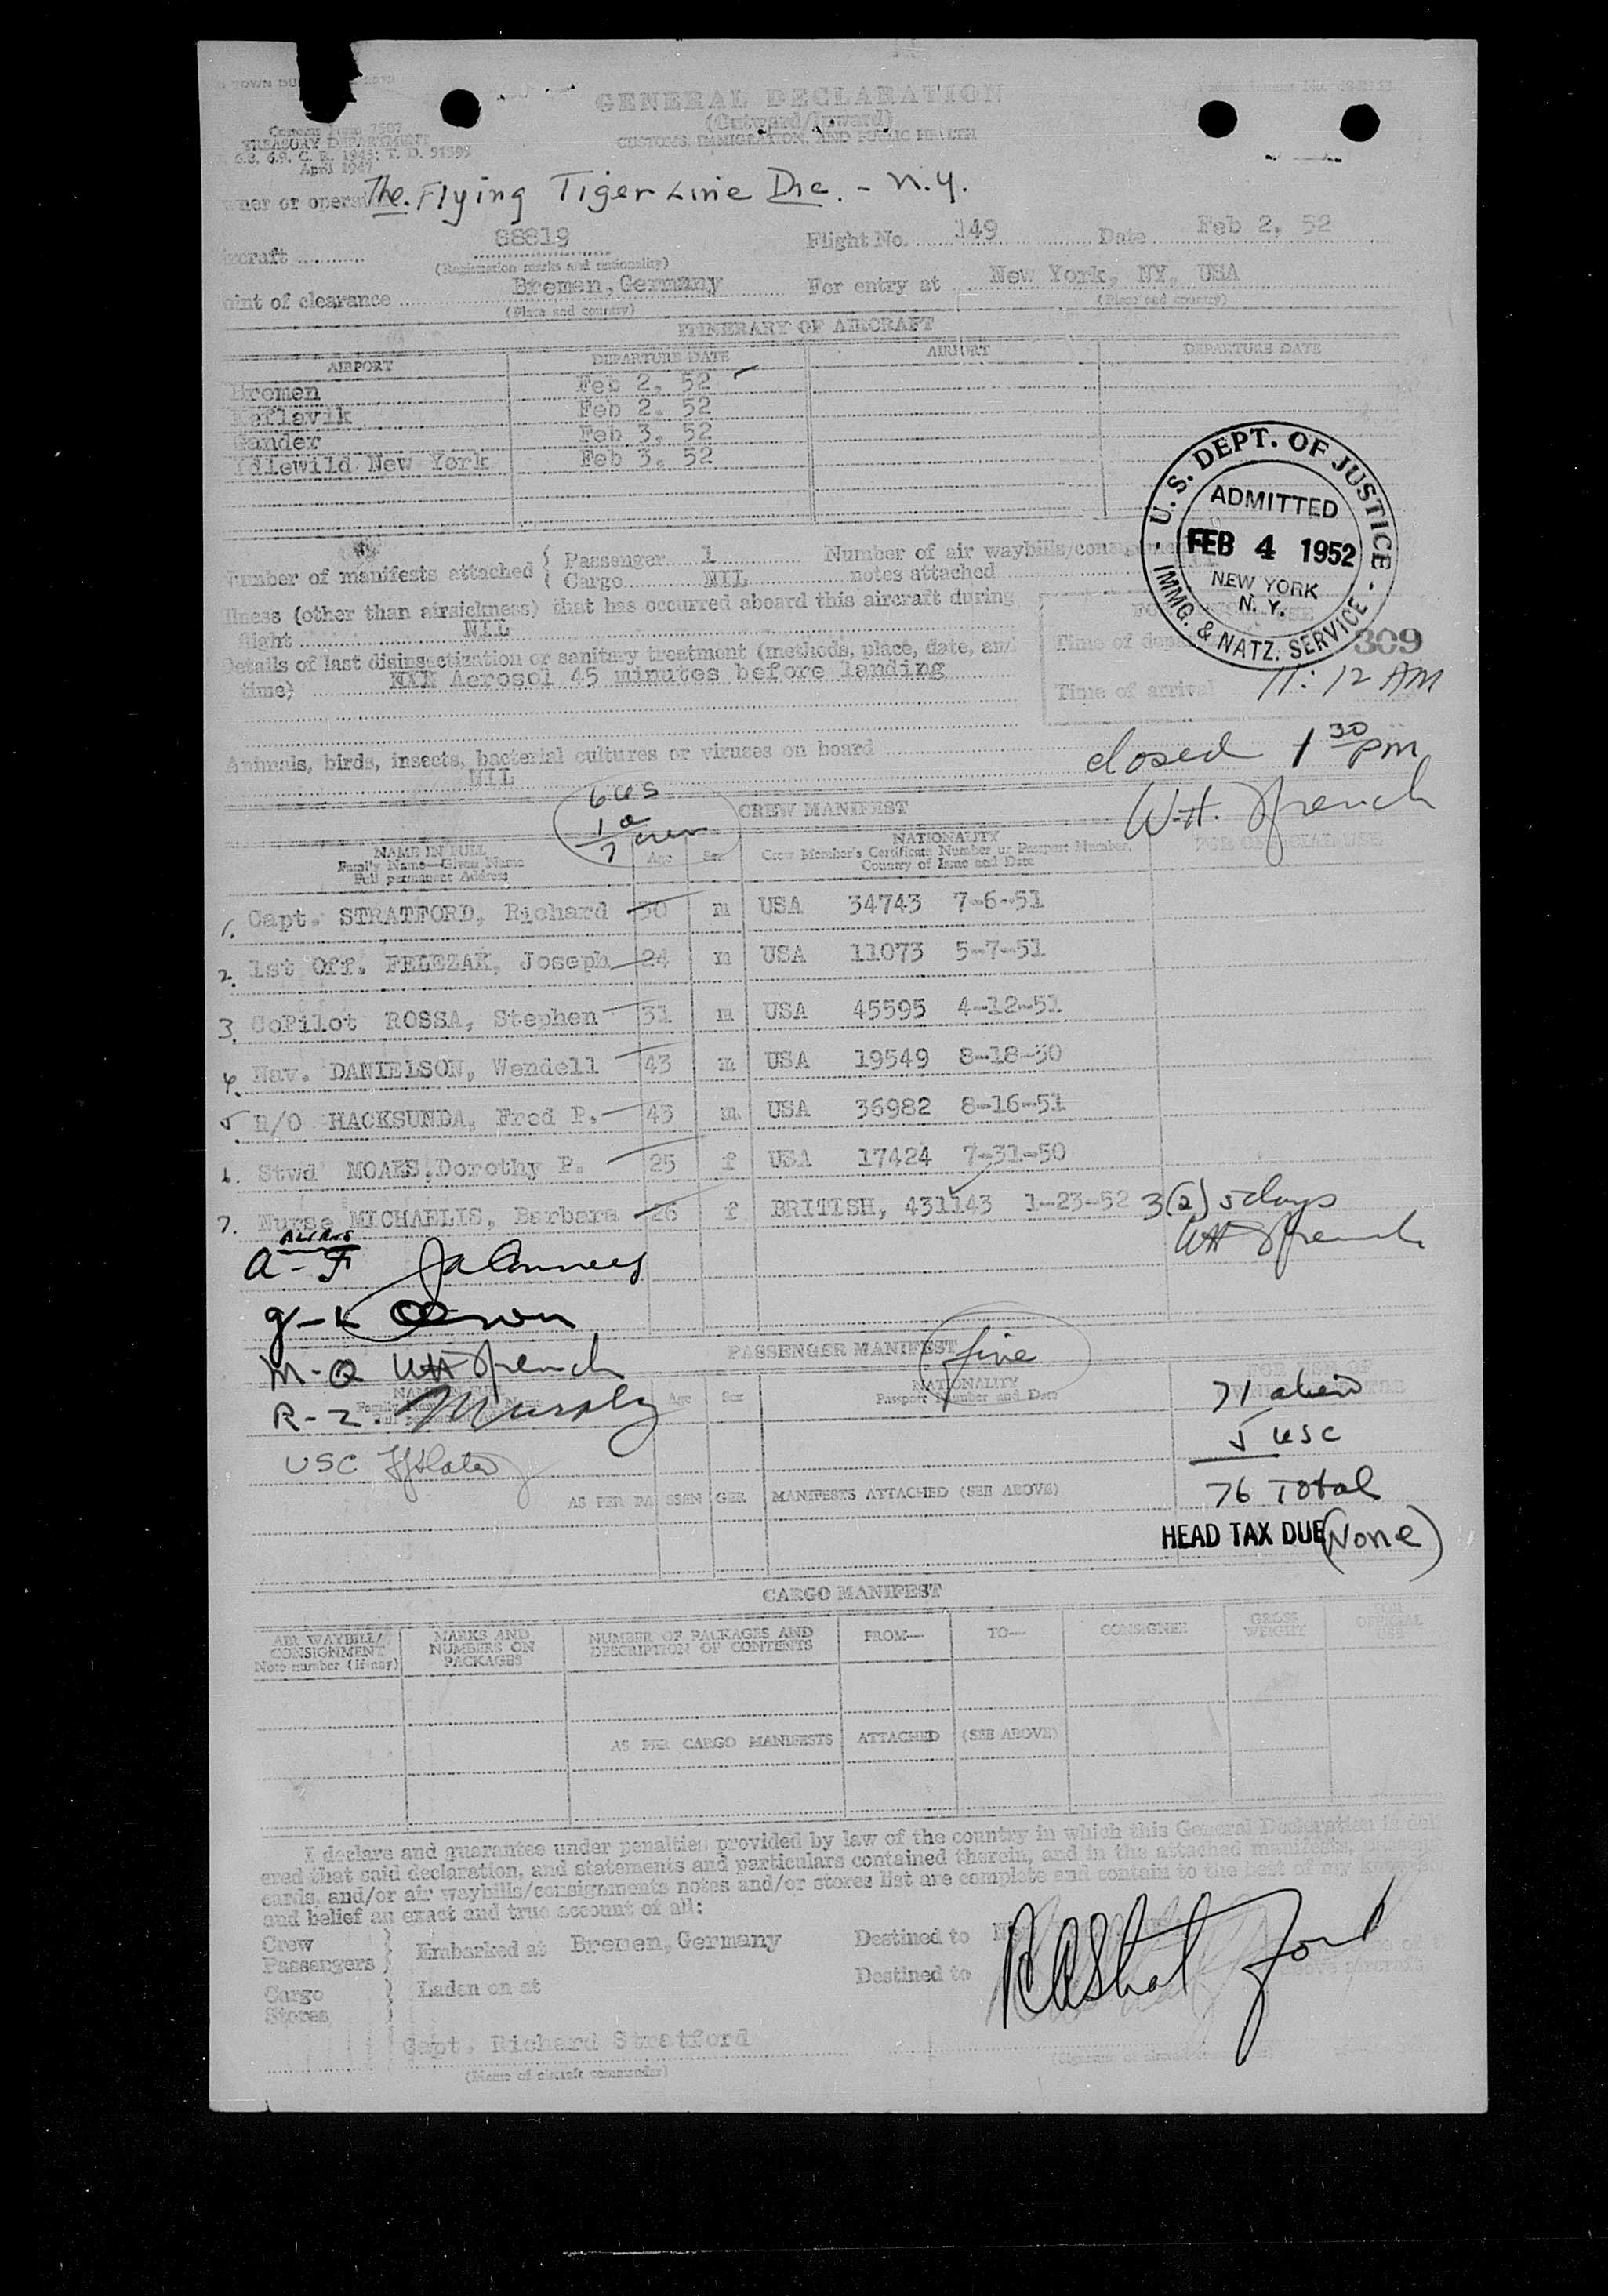 GENERAL DECLARATION
(Outward/Inward)
CUSTOMS, IMMIGRATION, AND PUBLIC HEALTH
Customs Form 7507
TREASURY DEPARTMENT
April 1947
The Flying Tiger Line Inc. - N.Y.
88819 Flight No. 149 Date Feb 2, 52
(Registration marks and nationality)
Bremen, Germany For entry at New York, NY, USA
(Place and country) (Place and country)
ITINERARY OF AIRCRAFT
AIRPORT DEPARTURE DATE AIRPORT DEPARTURE DATE
Bremen Feb 2, 52
Keflavik Feb 2. 52
Gander Feb 3. 52
Idlewild New York Feb 3. 52
U.S. DEPT. OF JUSTICE - IMMG. & NATZ. SERVICE -
ADMITTED
FEB 4 1952
NEW YORK
N. Y.
Number of manifests attached { Passenger 1 Number of air waybills/consignment
{ Cargo NIL notes attached
Illness (other than airsickness) that has occurred aboard this aircraft during
flight NIL
Details of last disinsectization or sanitary treatment (methods, place, date, and
time) Aerosol 45 minutes before landing
309
Time of arrival 11:12 AM
Animals, birds, insects, bacterial cultures or viruses on board
NIL
closed 1 30 pm
W.H. French
6 US
1 a
7 crew
CREW MANIFEST
NAME IN FULL
Family Name—Given Name
Full permanent Address
Age Sex
NATIONALITY
Crew Member's Certificate Number or Passport Number,
Country of Issue and Date
FOR OFFICIAL USE
1. Capt. STRATFORD, Richard 30 m USA 34743 7-6-51
2. 1st Off. FELEZAK, Joseph 24 m USA 11073 5-7-51
3. CoPilot ROSSA, Stephen 31 m USA 45595 4-12-51
4. Nav. DANIELSON, Wendell 43 m USA 19549 8-18-50
5. R/O HACKSUNDA, Fred P. 43 m USA 36982 8-16-51
6. Stwd MOAES, Dorothy P. 25 f USA 17424 7-31-50
7. Nurse MICHAELIS, Barbara 26 f BRITISH, 431143 1-23-52 3(2) 5 days
WH French
A - F
G - L
M - Q WH French
R - Z. Murphy
USC
PASSENGER MANIFEST
fine
Age Sex
NATIONALITY
Passport Number and Date
71 alien
5 USC
76 Total
AS PER PASSENGER MANIFESTS ATTACHED (SEE ABOVE)
HEAD TAX DUE (None)
CARGO MANIFEST
AIR WAYBILL/
CONSIGNMENT
Note number (if any)
MARKS AND
NUMBERS ON
PACKAGES
NUMBER OF PACKAGES AND
DESCRIPTION OF CONTENTS
FROM— TO— CONSIGNEE
GROSS
WEIGHT
FOR
OFFICIAL
USE
AS PER CARGO MANIFESTS ATTACHED (SEE ABOVE)
I declare and guarantee under penalties provided by law of the country in which this General Declaration is
ered that said declaration, and statements and particulars contained therein, and in the attached manifests,
cards, and/or air waybills/consignments notes and/or stores list are complete and contain to the best of my
and belief an exact and true account of all:
Crew
Passengers } Embarked at Bremen, Germany Destined to
Cargo
Stores } Laden on at Destined to
RA Stratford
Capt. Richard Stratford
(Name of aircraft commander)